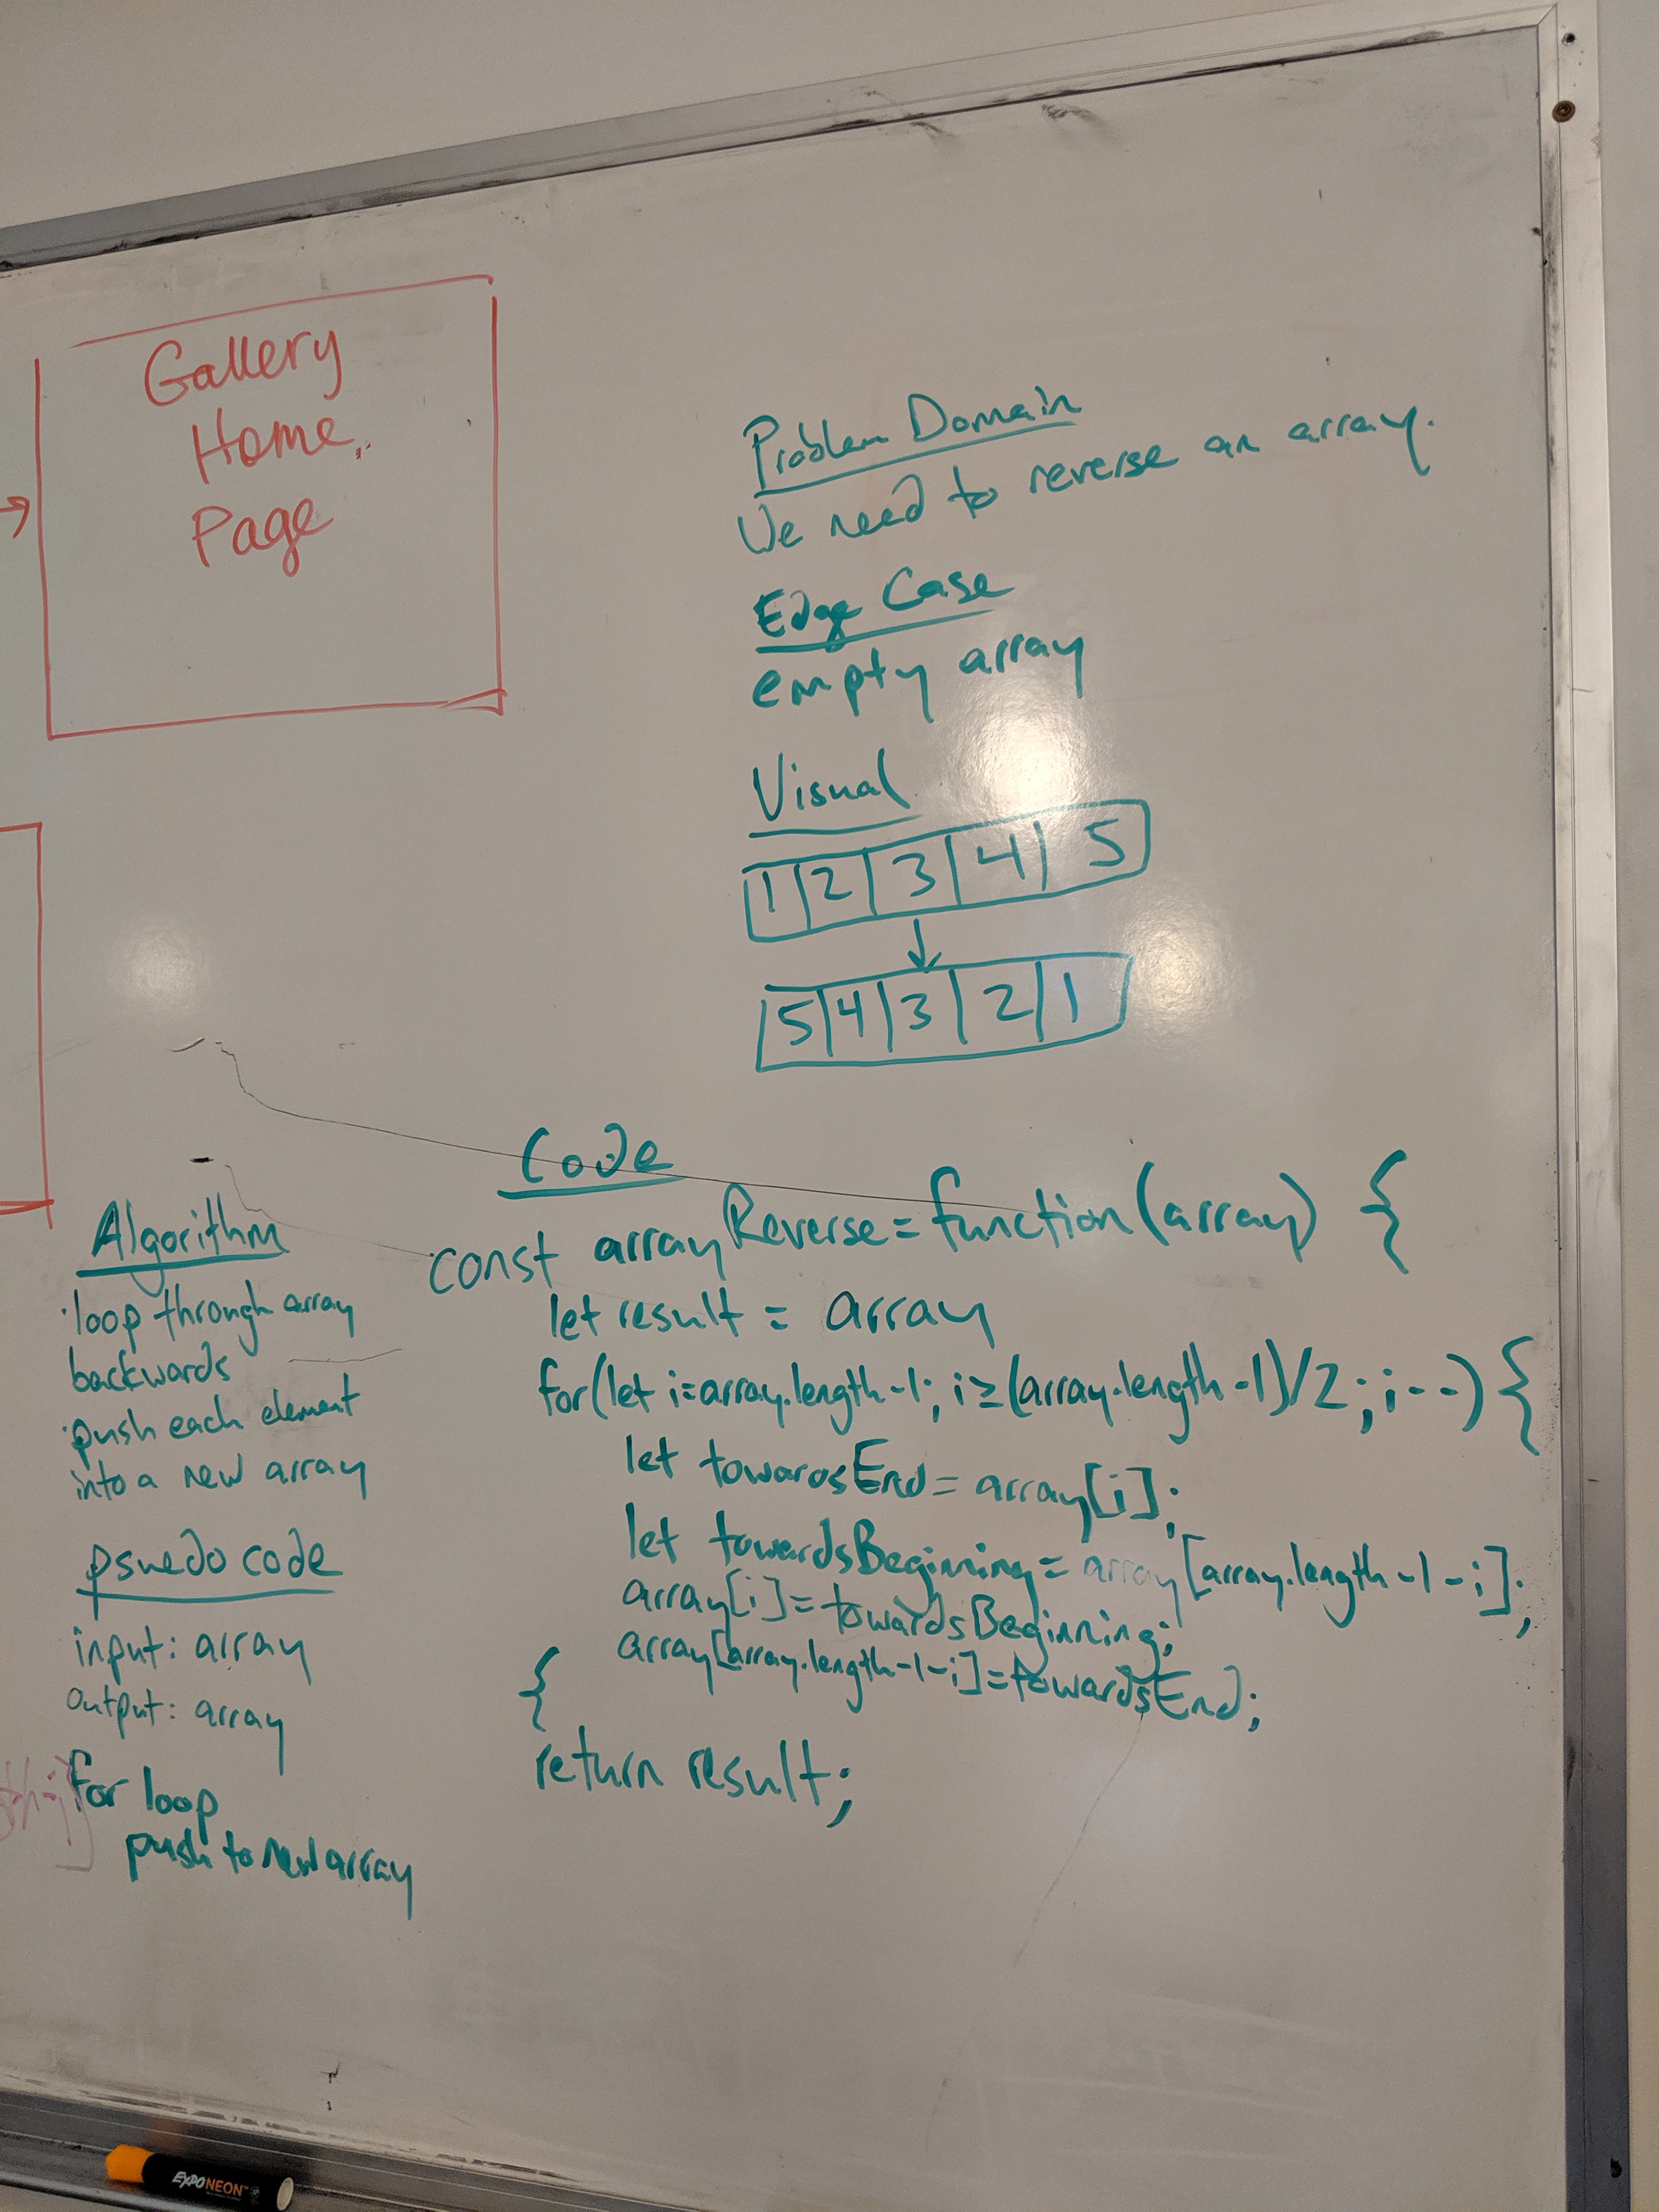 Gallery
Home
Page
Problem Domain
We need to reverse an array.
Edge Case
empty array
Visual
1 2 3 4 5
5 4 3 2 1
Algorithm
·loop through array
backwards
·push each element
into a new array
psuedo code
input: array
output: array
for loop
push to new array
Code
const arrayReverse = function(array) {
let result = array
for(let i=array.length-1; i≥(array.length-1)/2; i--) {
let towardsEnd = array[i];
let towardsBeginning = array[array.length-1-i];
array[i]=towardsBeginning;
array[array.length-1-i]=towardsEnd;
{
return result;
EXPO NEON™